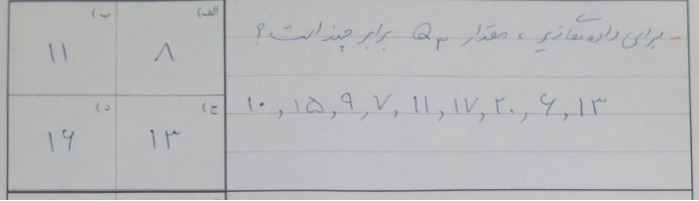 - برای داده‌های زیر، مقدار Q۳ برابر چند است؟
۱۰, ۱۵, ۹, ۷, ۱۱, ۱۷, ۲۰, ۶, ۱۳
الف) ۸
ب) ۱۱
ج) ۱۳
د) ۱۶